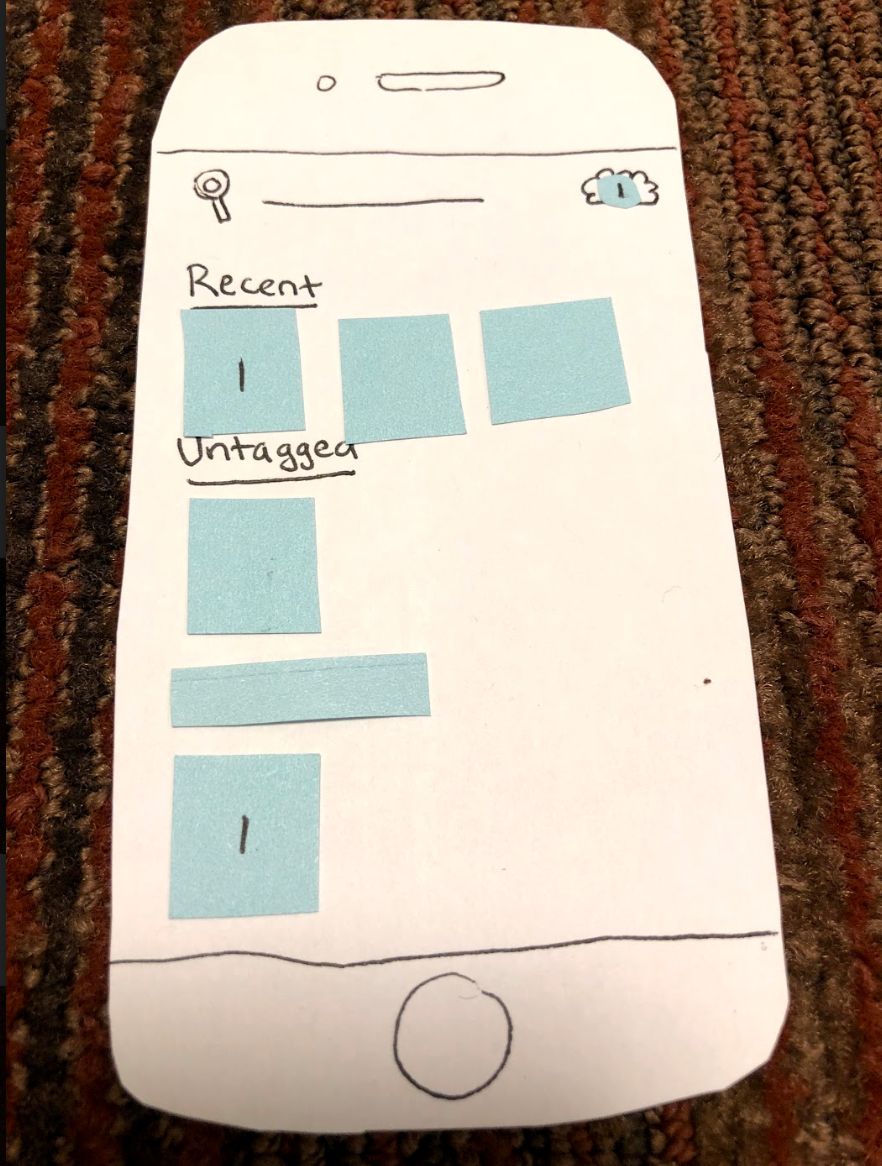 1
Recent
1
Untagged
1